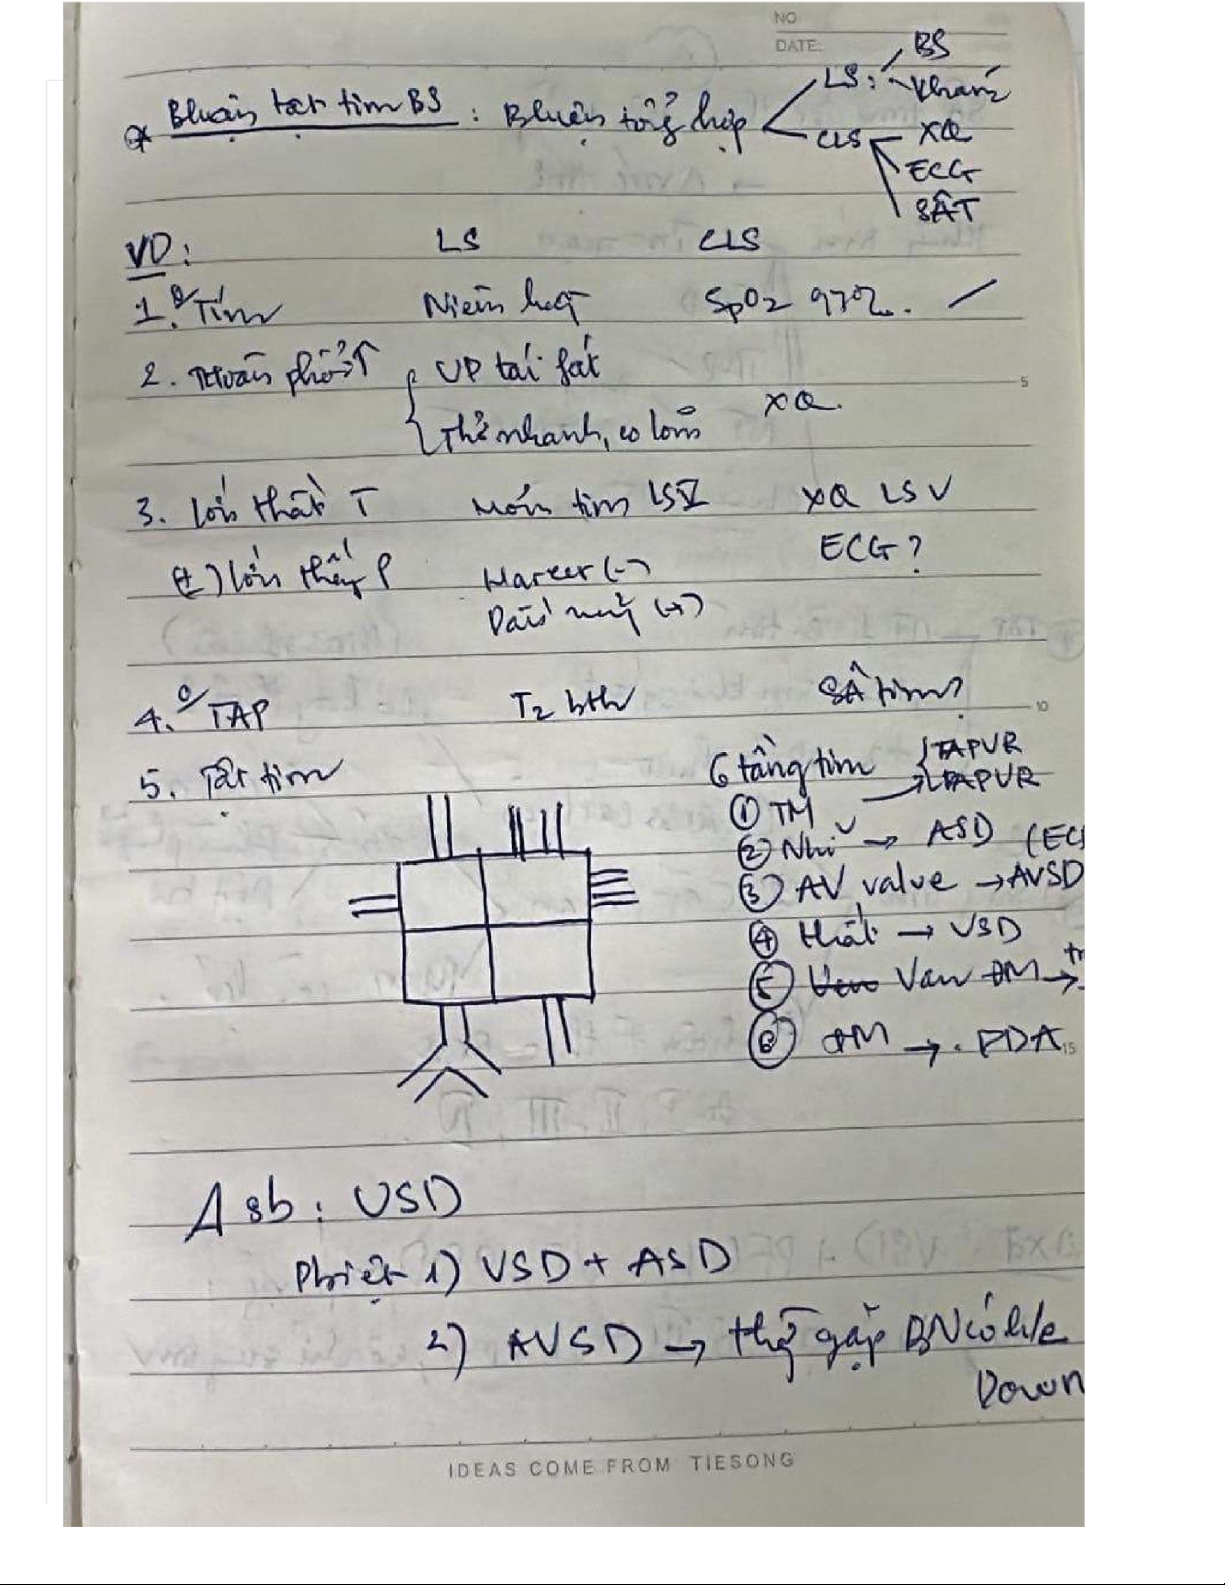 NO
DATE:
* Bluận tật tim BS : Bluận tổng hợp
LS: BS
Khám
CLS XQ
ECG
SÂT
VD: LS CLS
1. 0 Tím Niêm hồng SpO2 97%.
2. THoàn phổi ↑ VP tái fát
Thở nhanh, co lõm XQ.
3. lớn thất T Mỏm tim LSV XQ LSV
ECG?
(±) lớn thất P Harzer (-)
Dấu nảy (+)
4. 0 TAP T2 bth SÂ tim?
5. Tật tim 6 tầng tim TAPVR
PAPVR
① TM
② Nhĩ → ASD (EC
③ AV value → AVSD
④ thất → VSD
⑤ Van ĐM →
⑥ ĐM → PDA
5
10
15
Δ sb: VSD
Phiệt 1) VSD + ASD
2) AVSD → thg gặp BN có h/c
Down
IDEAS COME FROM TIESONG